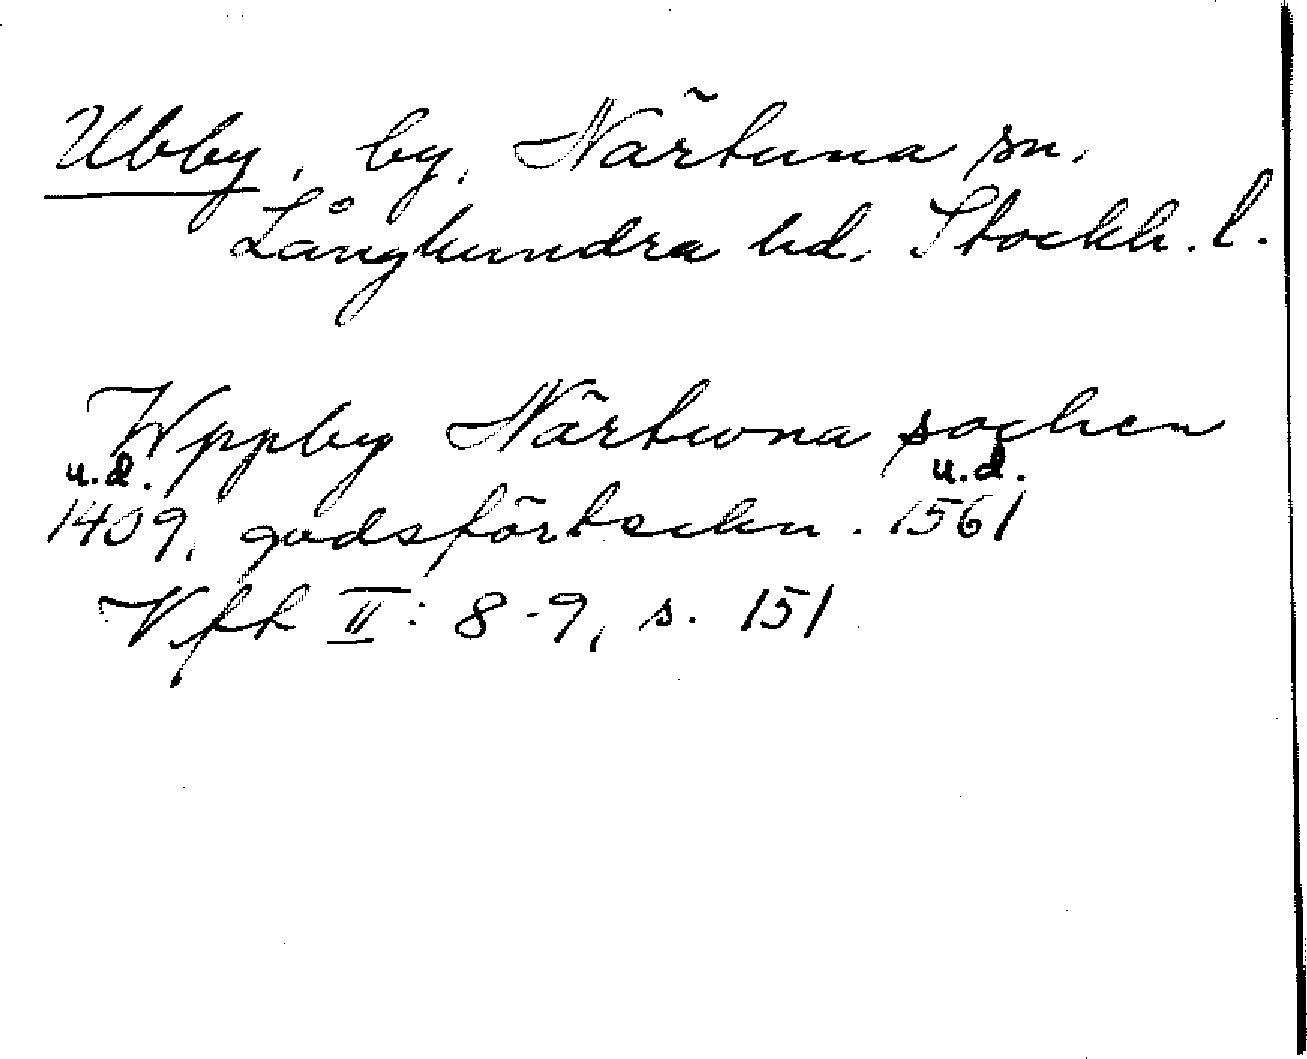 Ubby, by, Närtuna sn.
Långhundra hd. Stockh. l.
Wppby Närtwna sochen
u.d. u.d.
1409, godsförteckn. 1561
Vfh II: 8-9, s. 151